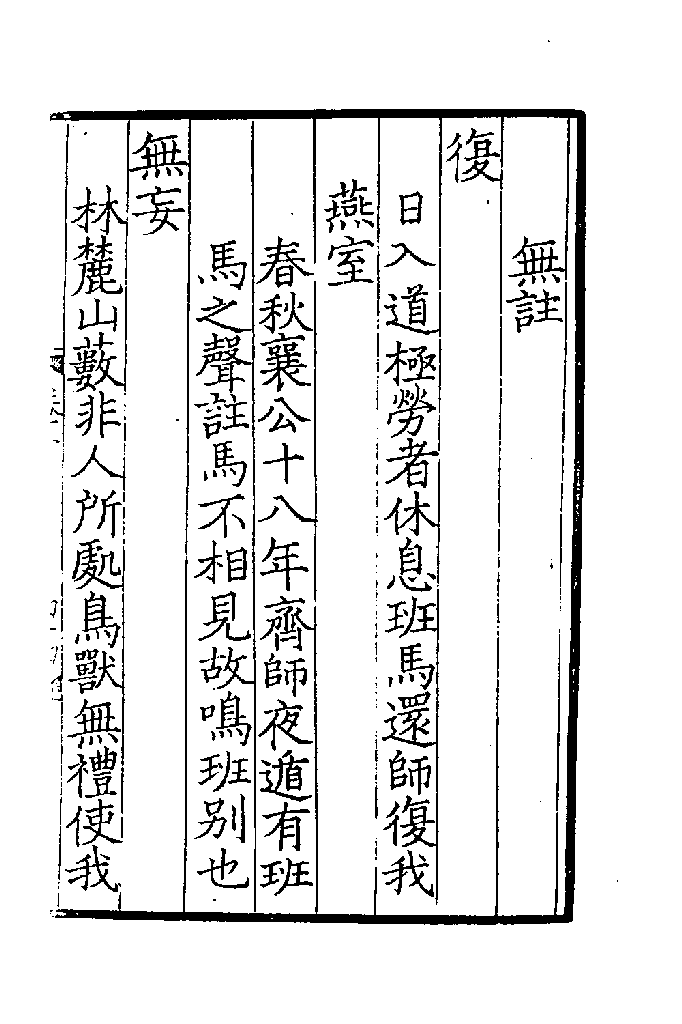 無註
復
日入道極勞者休息班馬還師復我
燕室
春秋襄公十八年齊師夜遁有班
馬之聲註馬不相見故鳴班别也
無妄
林麓山藪非人所處鳥獸無禮使我